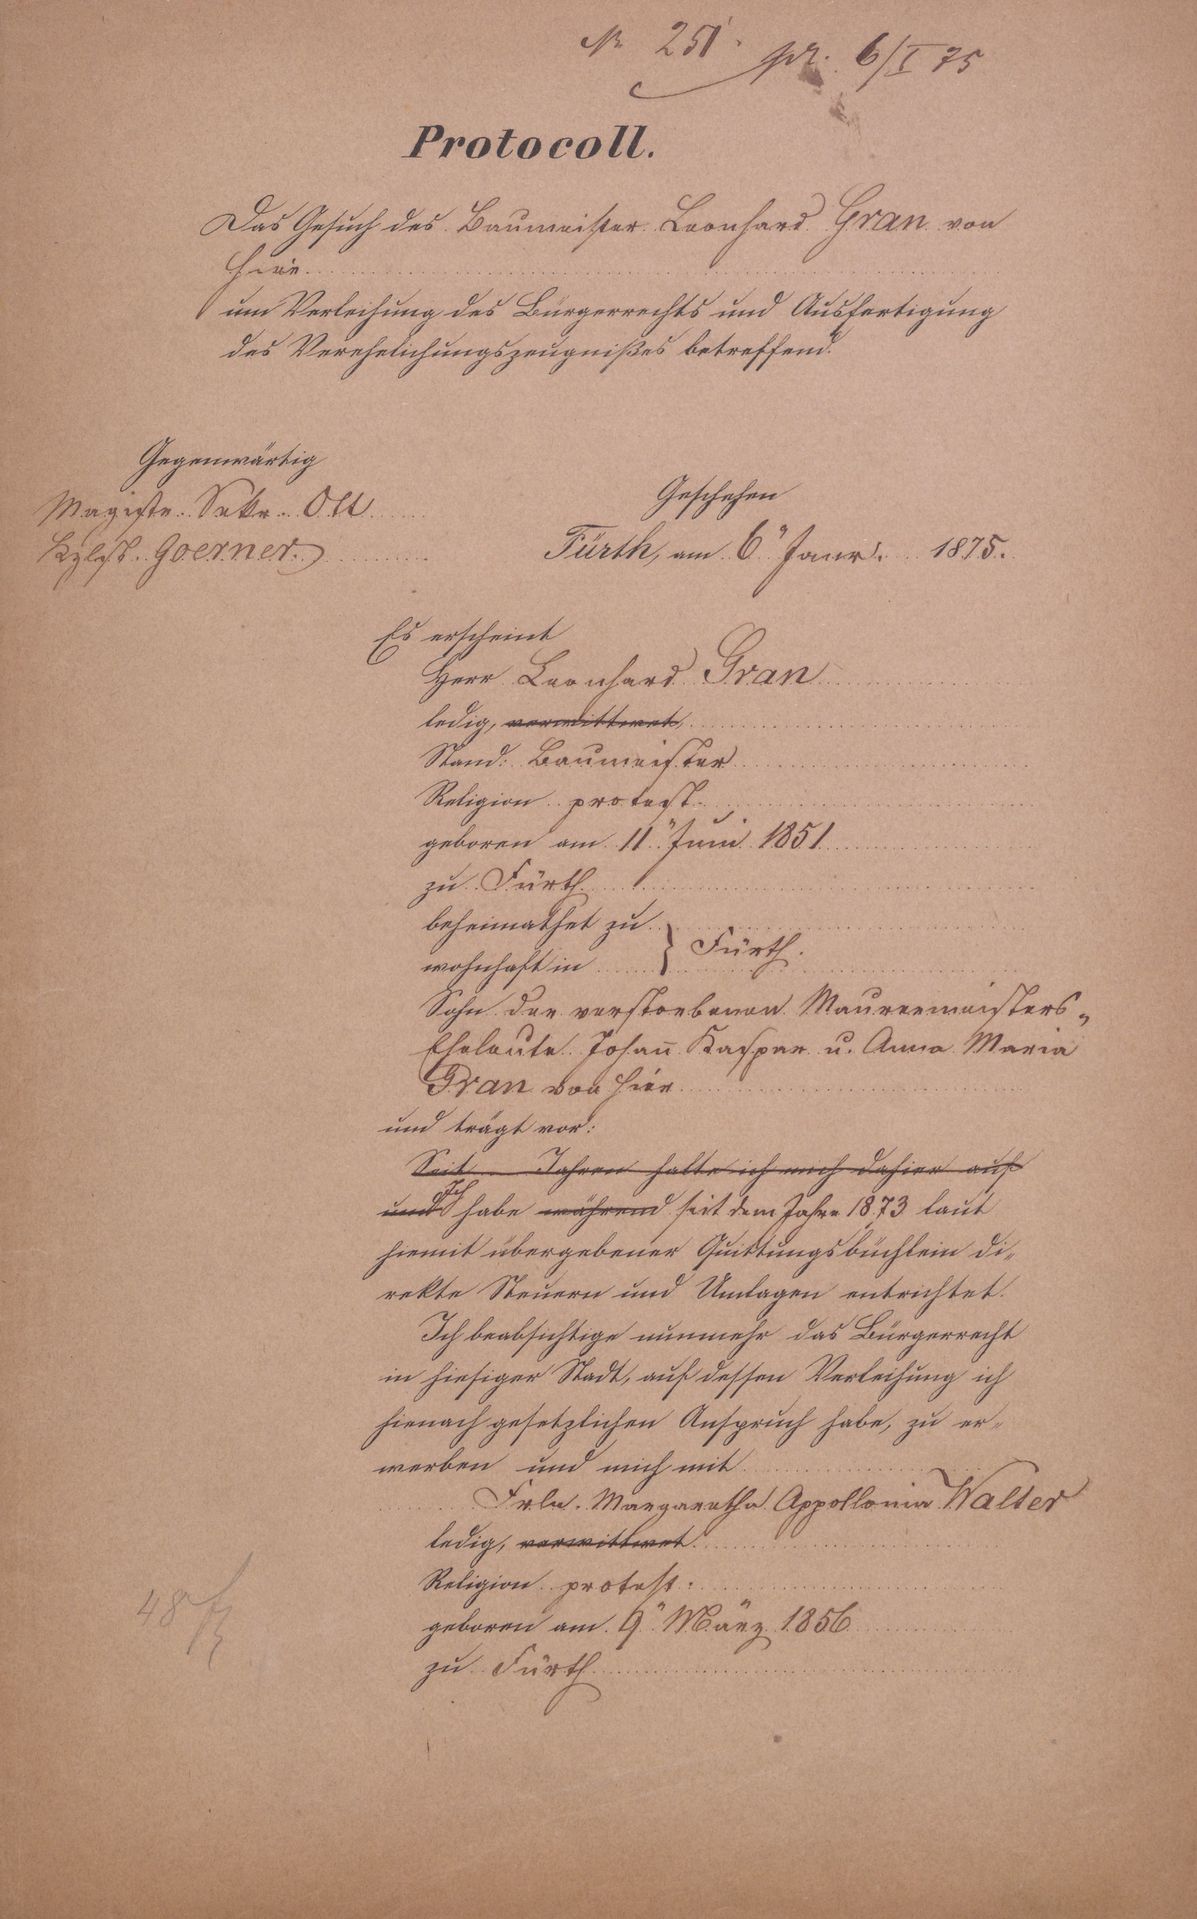 Nr. 251. pr. 6/I 75
Protocoll.
Das Gesuch des Baumeister Leonhard Gran von
hier
um Verleihung des Bürgerrechts und Ausfertigung
des Verehelichungszeugnißes betreffend.
Gegenwärtig
Magistr. Sekr. Ott
Goerner.
Geschehen
Fürth, am 6" Janr. 1875.
Es erscheint
Herr Leonhard Gran
ledig, verwittwet,
Stand: Baumeister
Religion protest.
geboren am 11" Juni 1851
zu Fürth
beheimathet zu
wohnhaft in } Fürth.
Sohn der verstorbenen Maurermeisters-
Eheleute Johann Kaspar u. Anna Maria
Gran von hier
und trägt vor:
Seit Jahren halte ich mich dahier auf
und Ich habe während seit dem Jahre 1873 laut
hiemit übergebener Quittungsbüchlein di-
rekte Steuern und Umlagen entrichtet.
Ich beabsichtige nunmehr das Bürgerrecht
in hiesiger Stadt, auf dessen Verleihung ich
hienach gesetzlichen Anspruch habe, zu er-
werben und mich mit
Frln. Margaretha Appollonia Walter
ledig, verwittwet
Religion protest.
geboren am 9" März 1856
zu Fürth
48